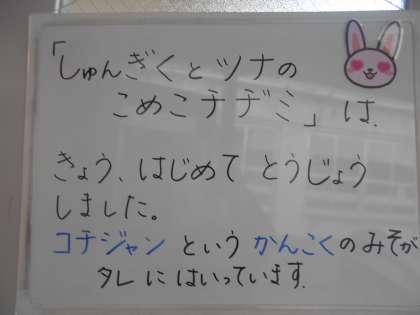 「しゅんぎくとツナの
こめこチヂミ」は、
きょう、はじめて とうじょう
しました。
コチジャン という かんこくのみそが
タレ にはいっています。